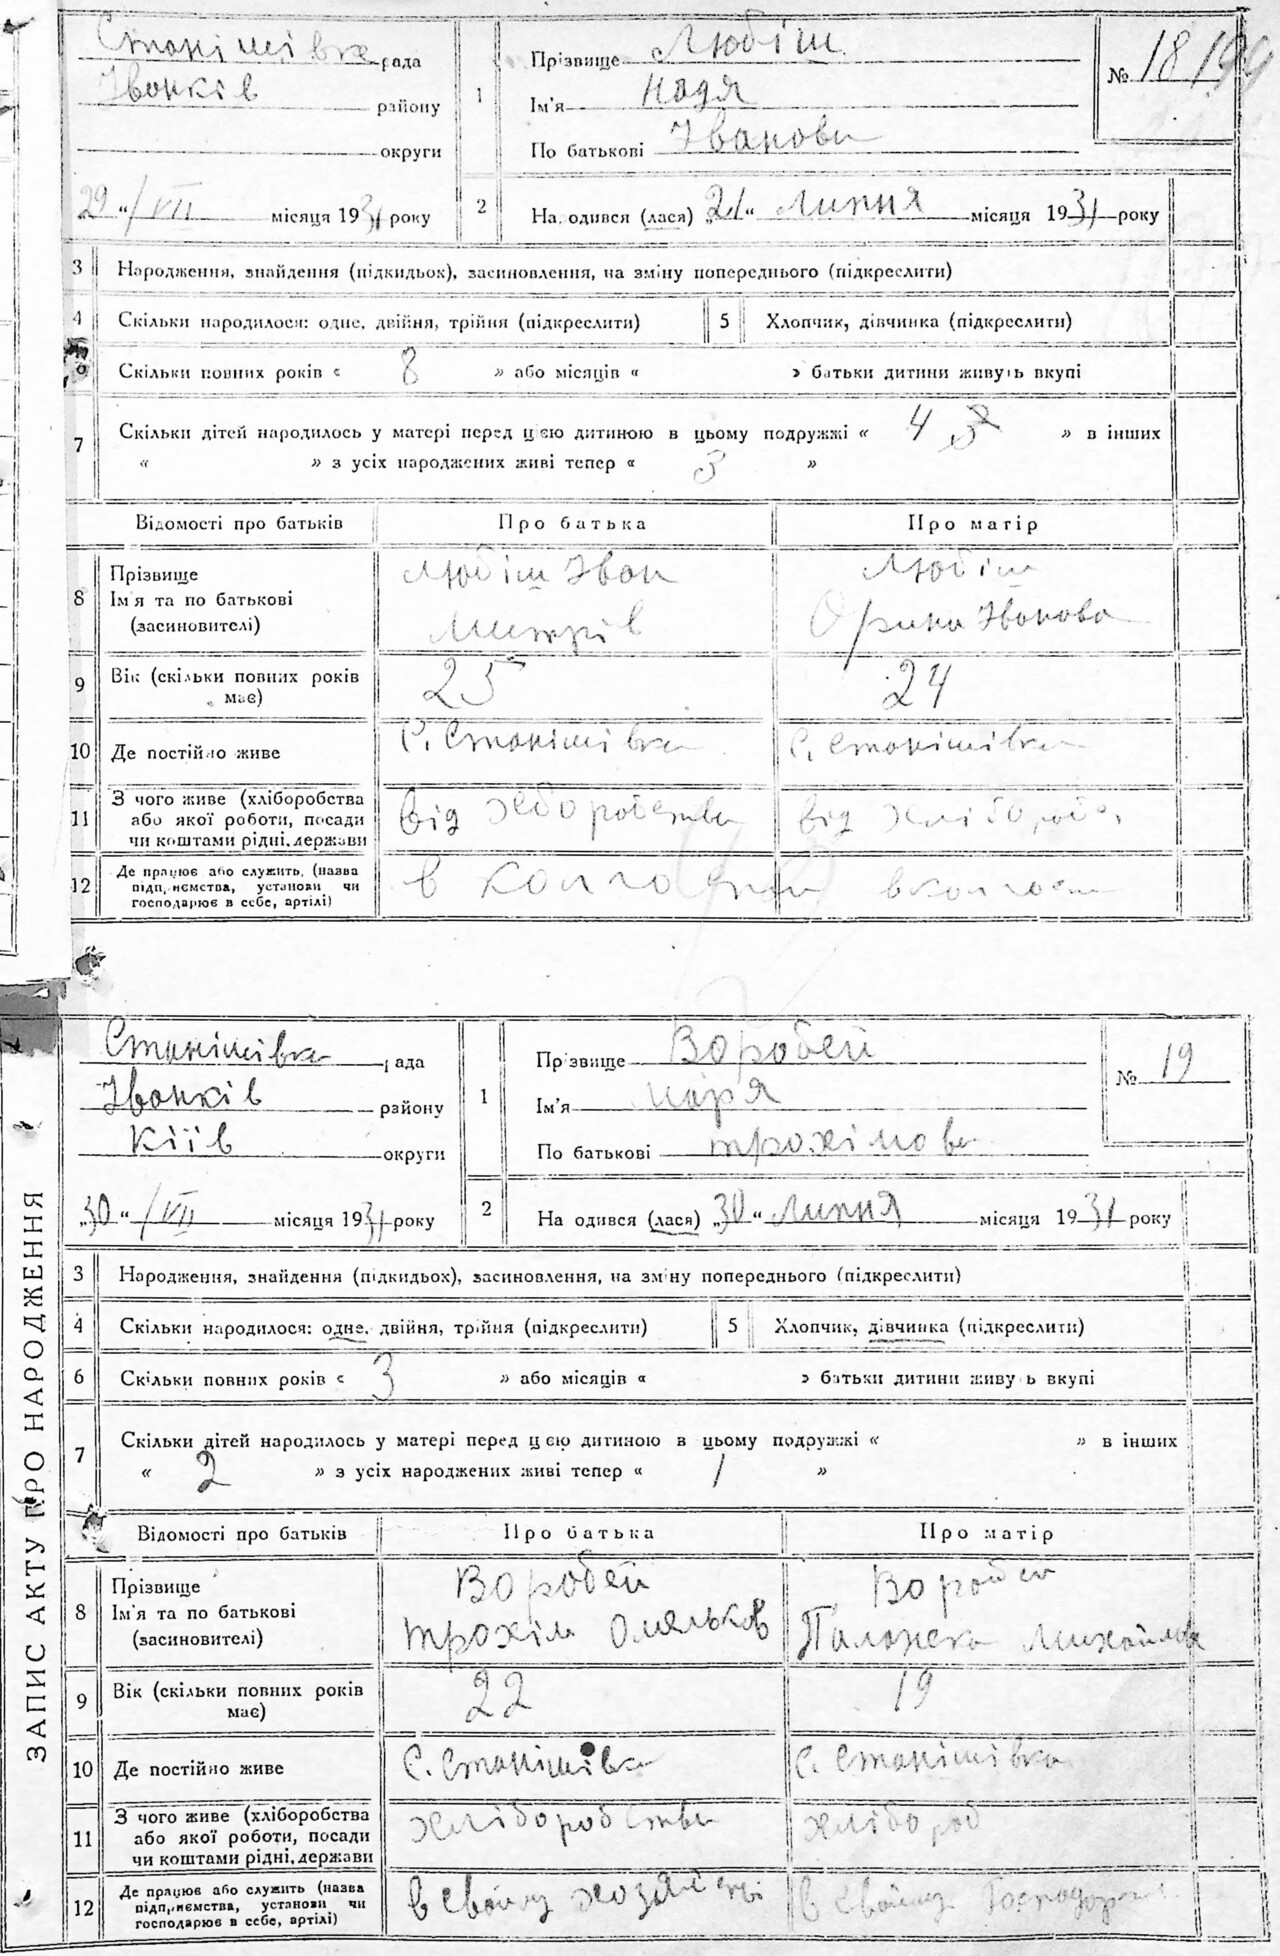 Станішівка рада
Іванків району
округи
29 “/VII місяця 1931 року
1 Прізвище Любіш
Ім'я Надя
По батькові Іванови
№ 18
2 На одився (лася) „21“ Липня місяця 1931 року
3 Народження, знайдення (підкидьок), засиновлення, на зміну попереднього (підкреслити)
4 Скільки народилося: одне, двійня, трійня (підкреслити) 5 Хлопчик, дівчинка (підкреслити)
Скільки повних років « 8 » або місяців « » батьки дитини живуть вкупі
7 Скільки дітей народилось у матері перед цією дитиною в цьому подружжі « 4 » в інших
“ » з усіх народжених живі тепер « 3 »
Відомості про батьків Про батька Про матір
8 Прізвище Ім'я та по батькові (засиновителі)
Любіш Іван Митрів
Любіш Орина Іванова
9 Вік (скільки повних років має) 25 24
10 Де постійно живе С. Станішівка С. Станішівка
11 З чого живе (хліборобства або якої роботи, посади чи коштами рідні, держави
від від
12 Де працює або служить, (назва підп, иємства, установи чи господарює в себе, артілі)
в колгоспи в колгоспи
ЗАПИС АКТУ ПРО НАРОДЖЕННЯ
Станішівка рада
Іванків району
Київ округи
„30“ /VII місяця 1931 року
1 Пр звище Воробей
Ім'я Маря
По батькові Трохімови
№ 19
2 На одився (лася) „30“ Липня місяця 1931 року
3 Народження, знайдення (підкидьох), засиновлення, на зміну попереднього (підкреслити)
4 Скільки народилося: одне, двійня, трійня (підкреслити) 5 Хлопчик, дівчинка (підкреслити)
6 Скільки повних років « 3 » або місяців « » батьки дитини живу ь вкупі
7 Скільки дітей народилось у матері перед цією дитиною в цьому подружжі « » в інших
“ 2 » з усіх народжених живі тепер « 1 »
Відомості про батьків Про батька Про матір
8 Прізвище Ім'я та по батькові (засиновителі)
Воробей Трохім
Воробей Михайлова
9 Вік (скільки повних років має) 22 19
10 Де постійно живе С. Станішівка С. Станішівка
11 З чого живе (хліборобства або якої роботи, посади чи коштами рідні, держави
хліборобства хлібороб
12 Де працює або служить (назва підп, иємства, установи чи господарює в себе, артілі)
в своїму в своїму